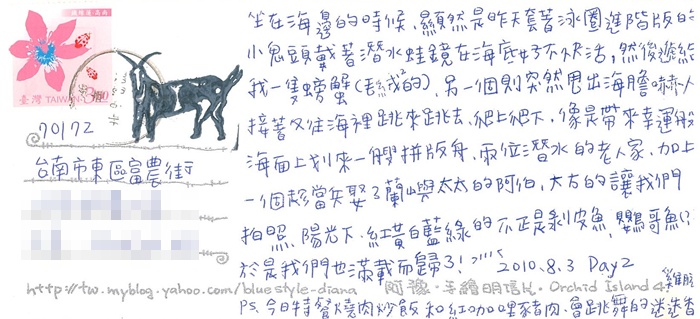 臺灣 TAIWAN
70172
台南市東區富農街
坐在海邊的時候、顯然是昨天套著泳圈進階版的
小鬼頭戴著潛水蛙鏡在海底好不快活，然後遞給
我一隻螃蟹
另一個則突然甩出海膽嚇人
接著又往海裡跳來跳去、爬上爬下、像是帶來幸運般
海面上划來一艘拼版舟、兩位潛水的老人家、加上
一個趁當兵娶了蘭嶼太太的阿伯、大方的讓我們
拍照、陽光下、紅黃白藍綠的不正是剝皮魚、鸚哥魚!?
於是我們也滿載而歸了!
2010.8.3 Day2
http://tw.myblog.yahoo.com/bluestyle-diana 阿豫・手繪明信片・Orchid Island 4
P.S. 今日特餐燒肉炒飯和紅咖哩豬肉、會跳舞的迷迭香
雞腿